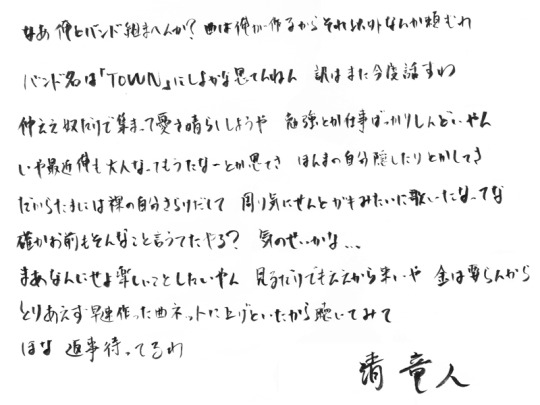 なあ 俺とバンド組まへんか？ 曲は俺が作るからそれ以外なんか頼むわ
バンド名は「TOWN」にしよかな思てんねん 訳はまた今度話すわ
仲ええ奴だけで集まって憂さ晴らししようや 勉強とか仕事ばっかりしんどいやん
いや最近俺も大人なってもうたなーとか思てき ほんまの自分隠したりとかしてき
だからたまには裸の自分さらけだして 周り気にせんとガキみたいに歌いたなってな
確かお前もそんなこと言うてたやろ？ 気のせいかな...
まあなんにせよ楽しいことしたいやん 見るだけでもええから来いや 金は要らんから
とりあえず早速作った曲ネットに上げといたから聴いてみて
ほな 返事待ってるわ
清 竜人